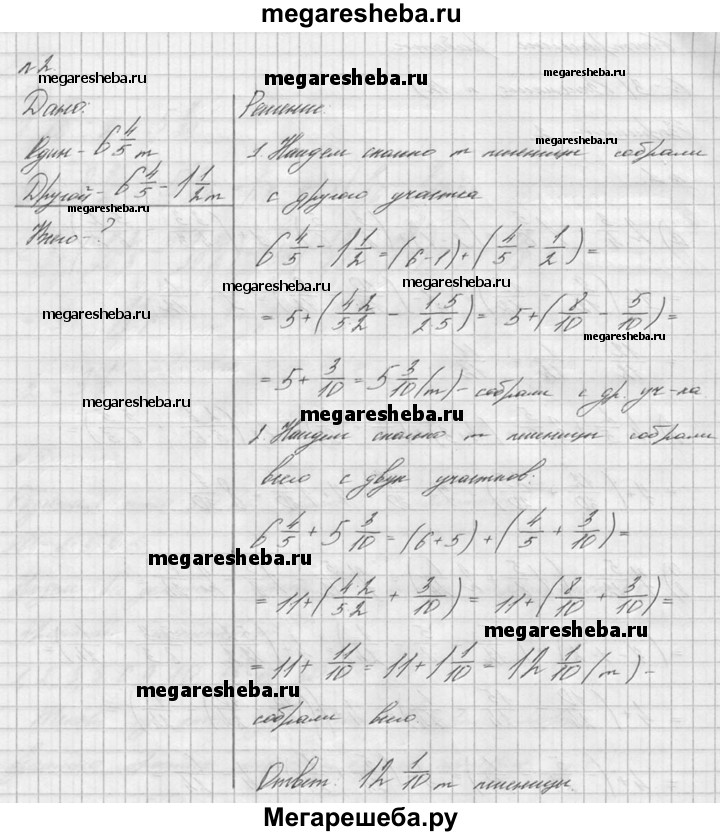 megaresheba.ru
№2.
megaresheba.ru megaresheba.ru megaresheba.ru
Дано:
Один - 6 4/5 т
Другой - 6 4/5 - 1 1/2 т
megaresheba.ru
Всего - ?
Решение.
megaresheba.ru
1. Найдем сколько т пшеницы собрали
с другого участка
6 4/5 - 1 1/2 = (6-1)+(4/5 - 1/2) =
megaresheba.ru megaresheba.ru
megaresheba.ru
= 5+(4·2/5·2 - 1·5/2·5) = 5+(8/10 - 5/10) =
megaresheba.ru
= 5+ 3/10 = 5 3/10 (т) - собрали с др. уч-ка
megaresheba.ru megaresheba.ru
2. Найдем сколько т пшеницы собрали
всего с двух участков:
6 4/5 + 5 3/10 = (6+5) + (4/5 + 3/10) =
megaresheba.ru
= 11+(4·2/5·2 + 3/10) = 11+(8/10 + 3/10) =
megaresheba.ru
= 11+ 11/10 = 11+1 1/10 = 12 1/10 (т) -
megaresheba.ru
собрали всего.
Ответ: 12 1/10 т пшеницы.
Мегарешеба.ру